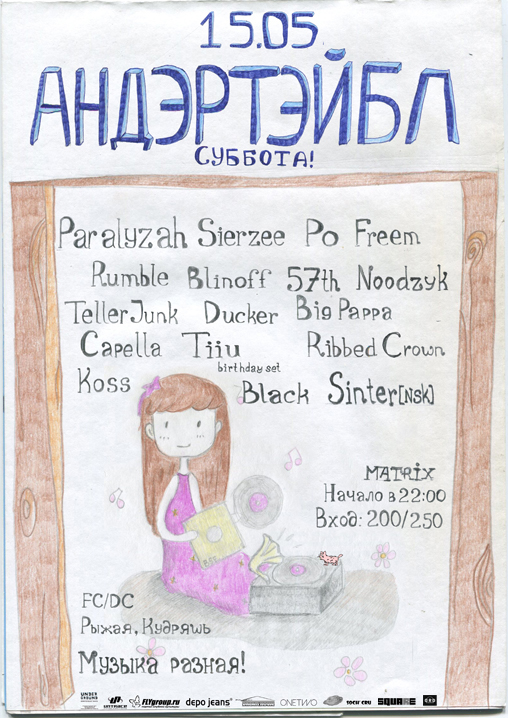 15.05
АНДЭРТЭЙБЛ
СУББОТА!
Paralyzah Sierzee Po Freem
Rumble Blinoff 57th Noodzyk
Teller Junk Ducker Big Pappa
Capella Tiiu Ribbed Crown
birthday set
Koss Black Sinter[NSK]
MATRIX
Начало в 22:00
Вход: 200/250
FC/DC
Рыжая, Кудряшь
Музыка разная!
UNDER GROUND
FLYgroup.ru depo jeans ONETWO SOCK CRU SQUARE